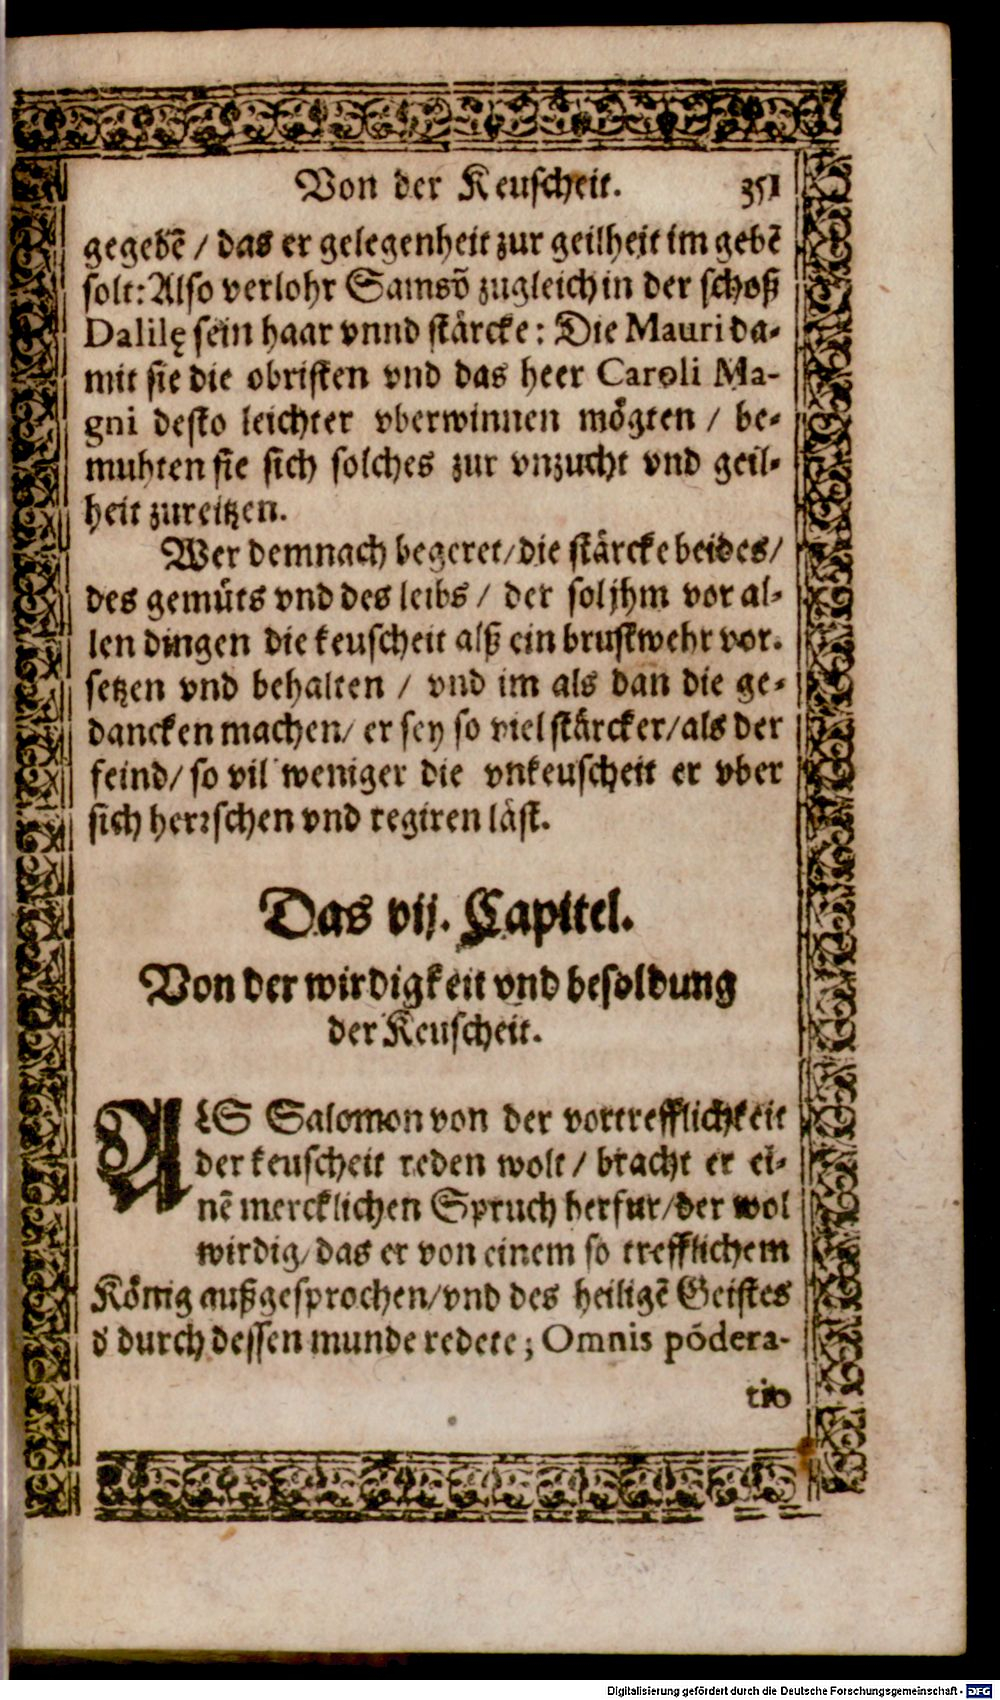 Von der Keuscheit. 351
gegebẽ / das er gelegenheit zur geilheit im gebẽ
solt: Also verlohr Samsõ zugleich in der schoß
Dalilę sein haar vnnd stärcke: Die Mauri da-
mit sie die obristen vnd das heer Caroli Ma-
gni desto leichter vberwinnen mögten / be-
muhten sie sich solches zur vnzucht vnd geil-
heit zureitzen.
Wer demnach begeret / die stärcke beides /
des gemüts vnd des leibs / der sol jhm vor al-
len dingen die keuscheit alß ein brustwehr vor-
setzen vnd behalten / vnd im als dan die ge-
dancken machen / er sey so viel stärcker / als der
feind / so vil weniger die vnkeuscheit er vber
sich herrschen vnd regiren läst.
Das vij. Capitel.
Von der wirdigkeit vnd besoldung
der Keuscheit.
ALS Salomon von der vortrefflichkeit
der keuscheit reden wolt / bracht er ei-
nẽ mercklichen Spruch herfur / der wol
wirdig / das er von einem so trefflichem
König außgesprochen / vnd des heiligẽ Geistes
d durch dessen munde redete; Omnis põdera-
tio
Digitalisierung gefördert durch die Deutsche Forschungsgemeinschaft - DFG